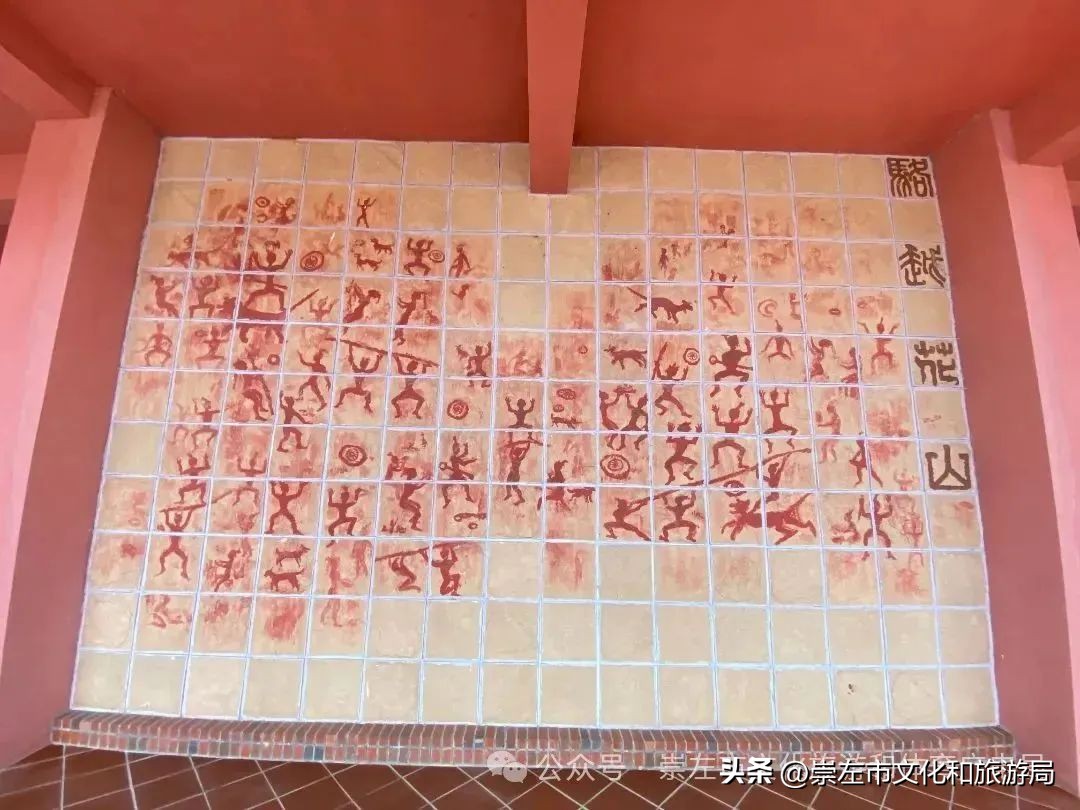 駱越花山
公众号
头条 @崇左市文化和旅游局